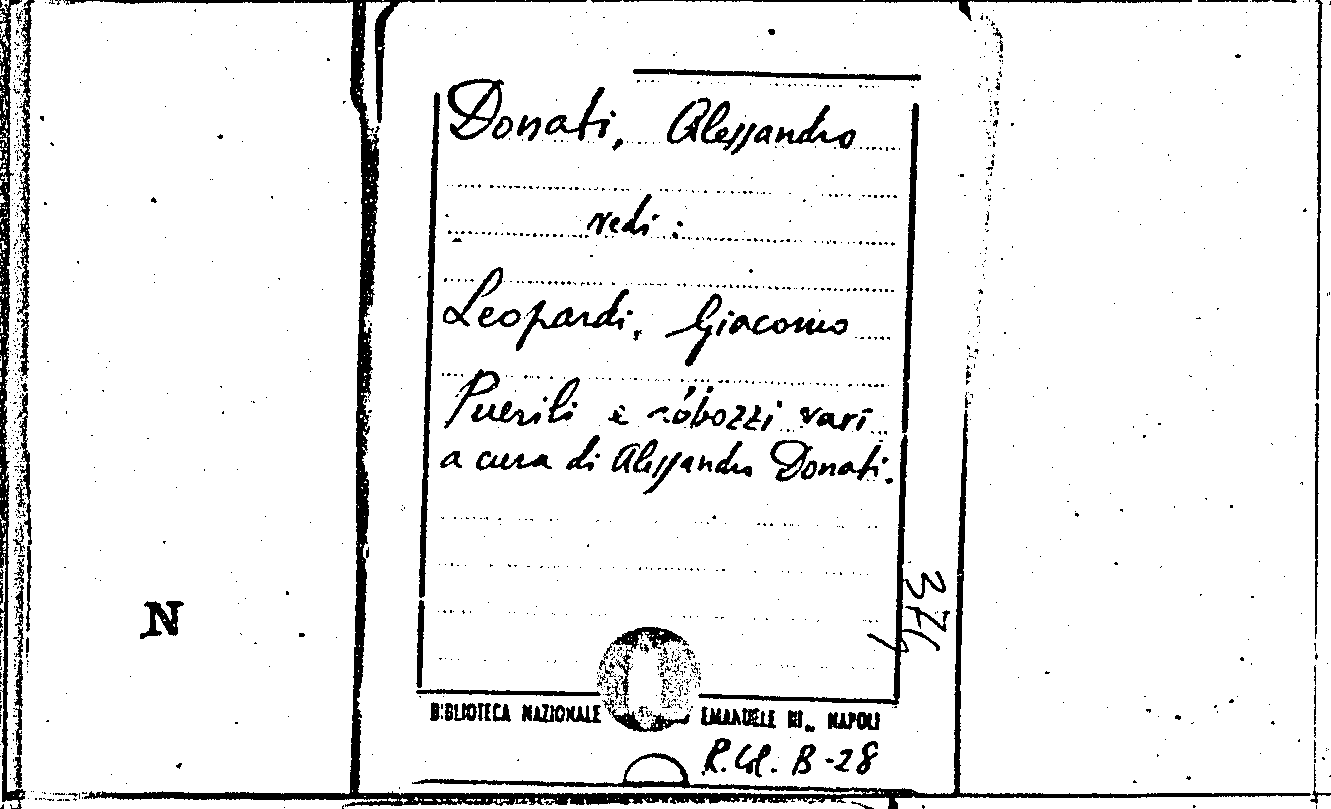 Donati, Alessandro
vedi:
Leopardi, Giacomo
Puerili e abbozzi vari
a cura di Alessandro Donati.
N
BIBLIOTECA NAZIONALE EMANUELE III, NAPOLI
B-28